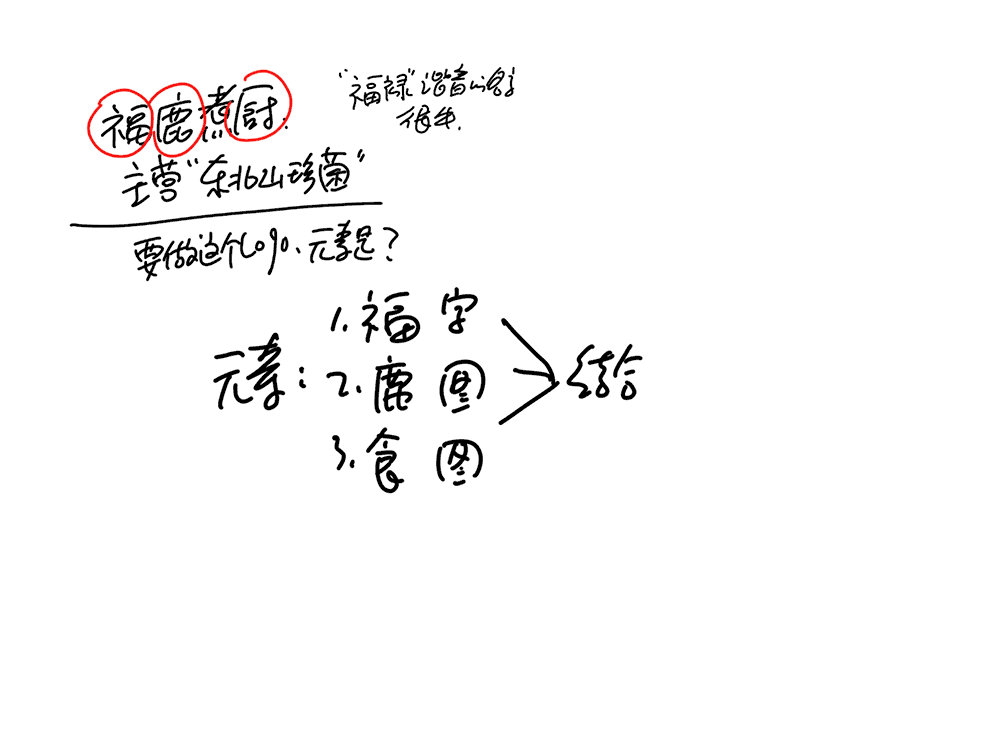 福鹿煮厨.
"福禄"谐音的名字
很生.
主营"东北山珍菌"
要做这个logo、元素是?
元素:
1.福 字
2.鹿 图
3.食 图
结合